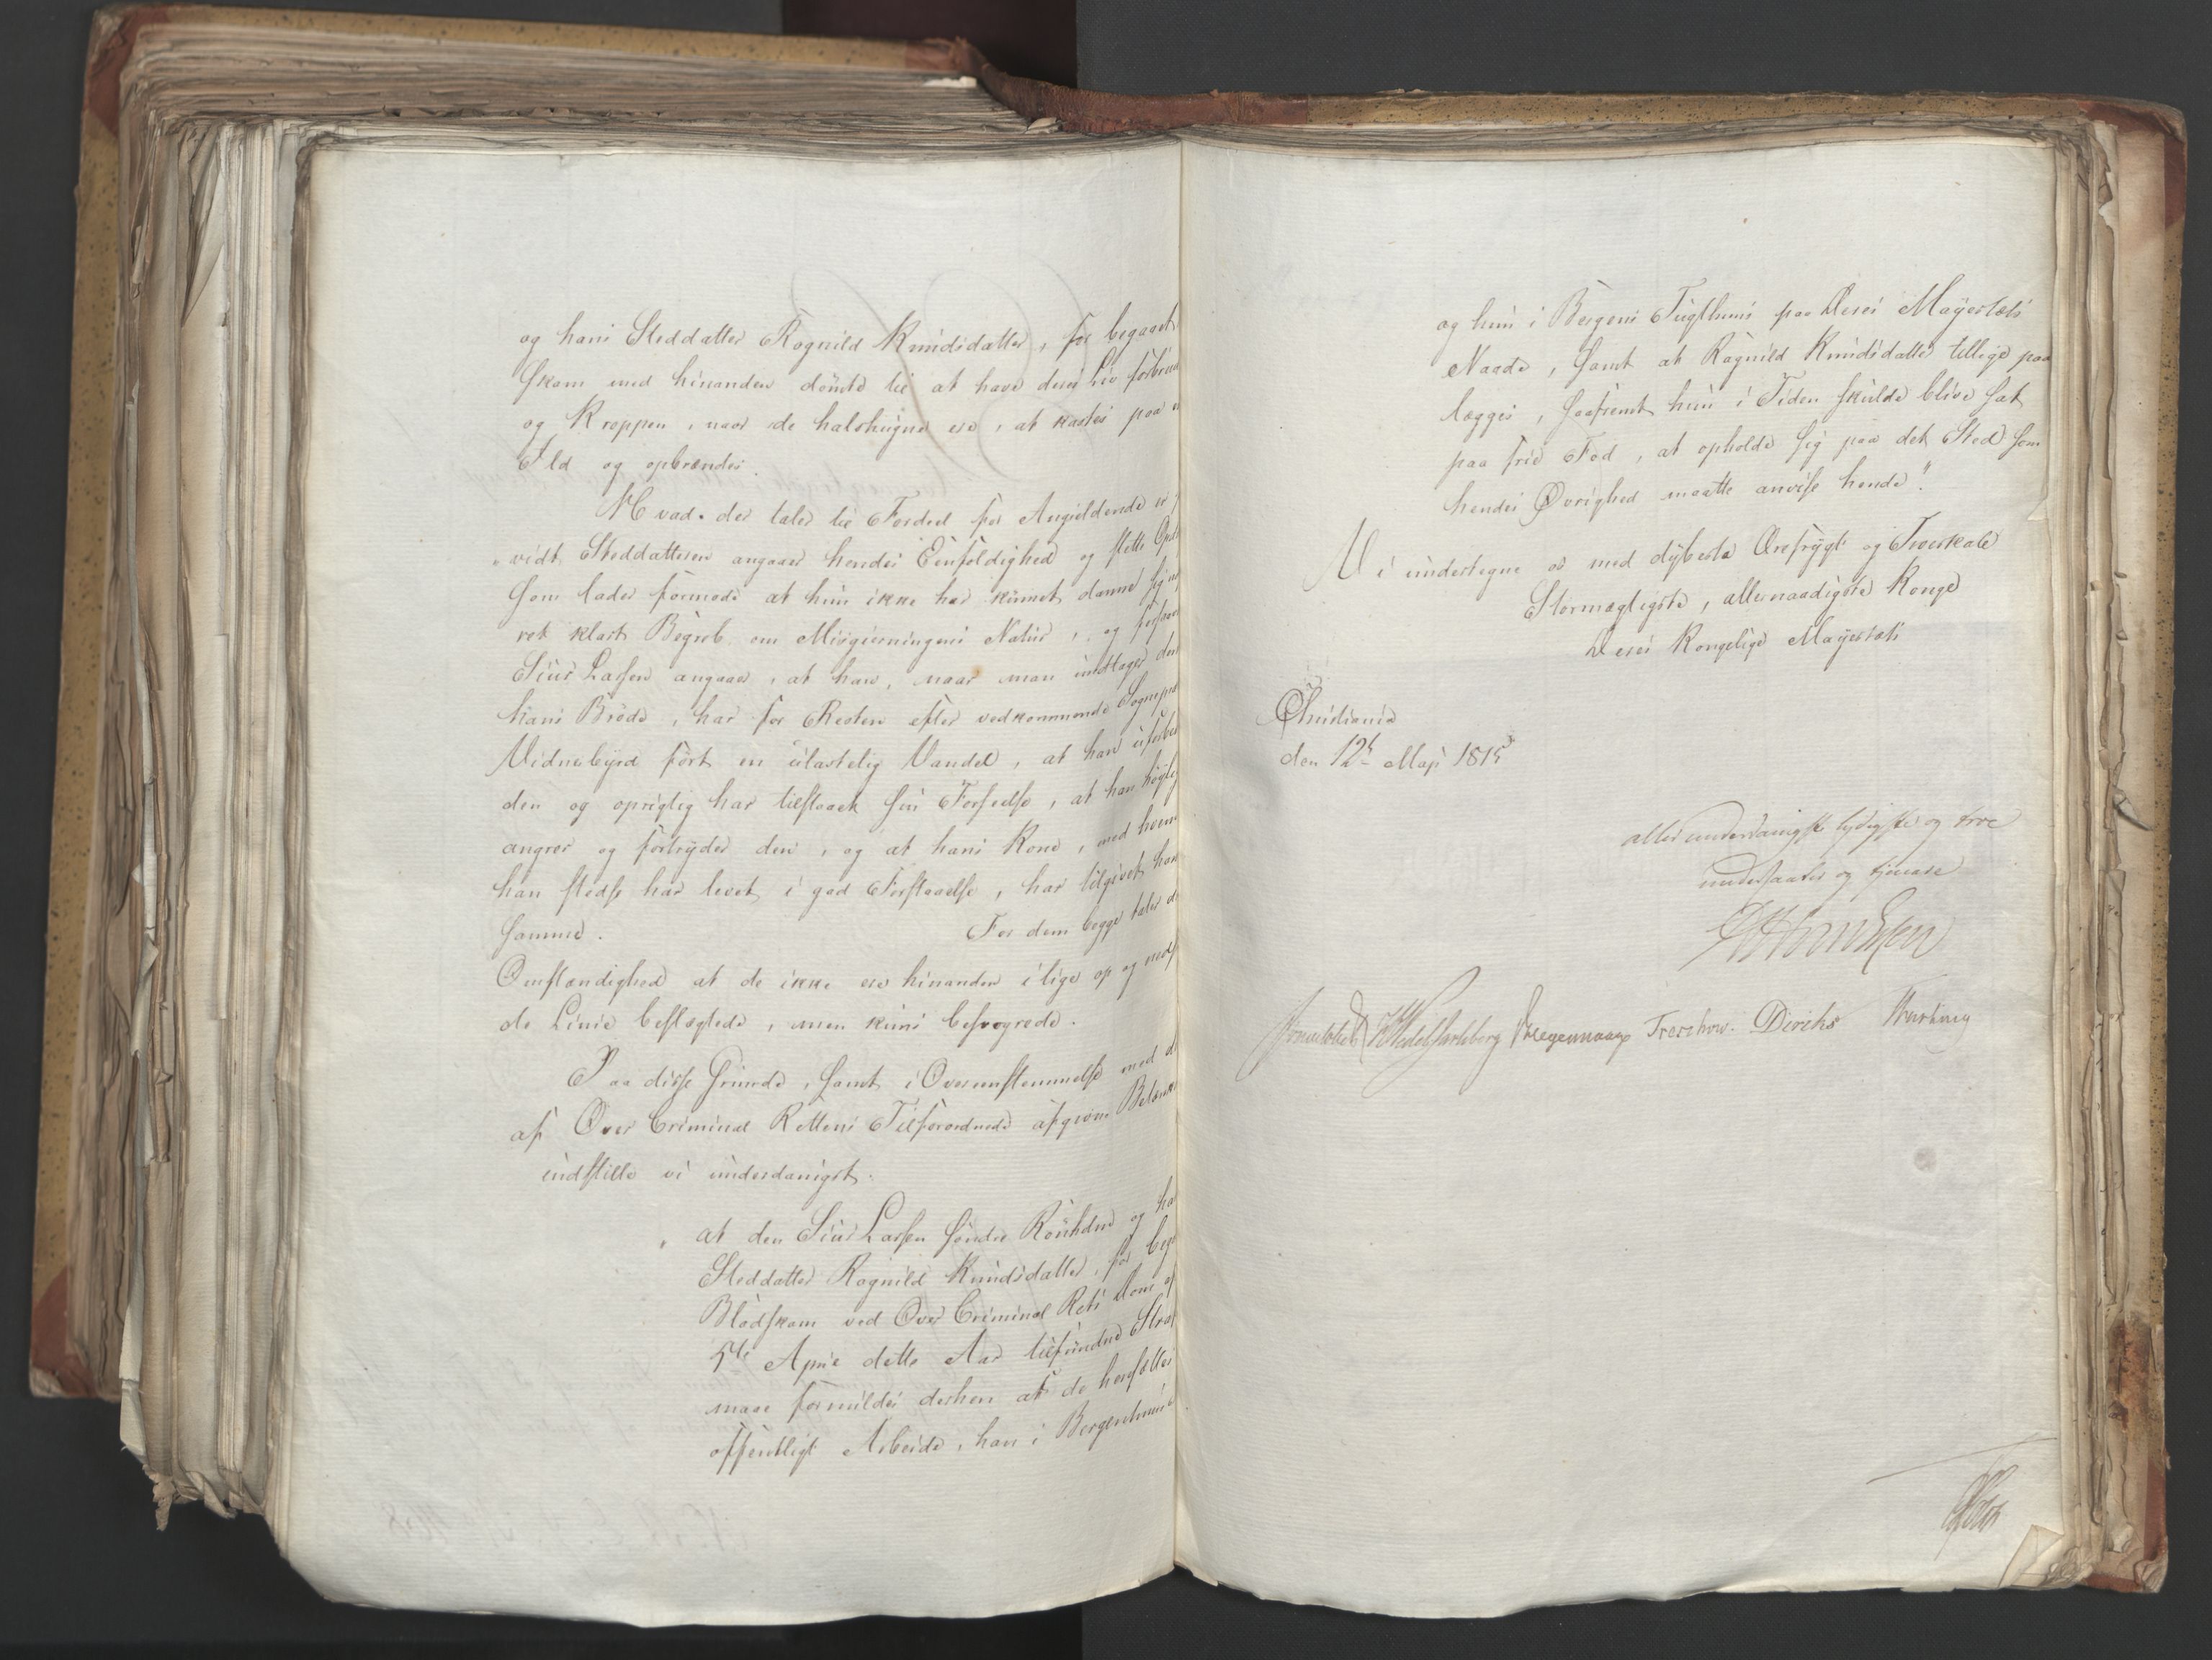 og hans Steddatter Rognild Knudsdatter, for begaaet
skam med hinanden dömte til at have deres Liv forbrudt
og Kroppen, naar de halshugne ere, at kastes paa
Ild og opbrændes.
Hvad der taler til Fordeel for Angieldende er,
vidt Steddatteren angaaer hendes Eenfoldighed og slette
som lader formode at hun ikke har kunnet danne sig
ret klart Begreb om Misgierningens Natur, og
Siur Larsen angaaer, at han, naar man undtager den
hans Bröde, har for Resten efter vedkommende
Vidnebyrd fört en ulastelig Vandel, at han
den og oprigtig har tilstaaet sin Forseelse, at han
angrer og fortryder den, og at hans Kone, med hvem
han stedse har levet i god Forstaaelse, har tilgivet ham
samme. For dem begge taler
Omstændighed at de ikke ere hinanden i lige op og
de Linie beslægtede, men kuns besvogrede.
Paa disse Grunde, samt i Overensstemmelse med
af Over Criminal Rettens Tilforordnede afgivne
indstille vi underdanigst.
at den Siur Larsen söndre og
Steddatter Rognild Knudsdatter, for
Blodskam ved Over Criminal Rets Dom af
5te April dette Aar tilfundne
maae formildes derhen at de hensættes
offentligt Arbeide, han i Bergenhuus
og hun i Bergens Tugthuus paa Deres Mayestæts
Naade, samt at Ragnild Knudsdatter tillige paa
lægges, saafremt hun i Tiden skulde blive sat
paa frie Fod, at opholde sig paa det Sted som
hendes Øvrighed maatte anvise hende".
Vi undertegne os med dybeste Ærefrygt og Troeskab
Stormægtigste, allernaadigste Konge
Deres Kongelige Mayestæts
Christiania
den 12t Maji 1815
allerunderdanigste lydigste og troe
undersaatter og tjenere
Sommerhielm Wedel Jarlsberg Hegermann Treschow. Diriks